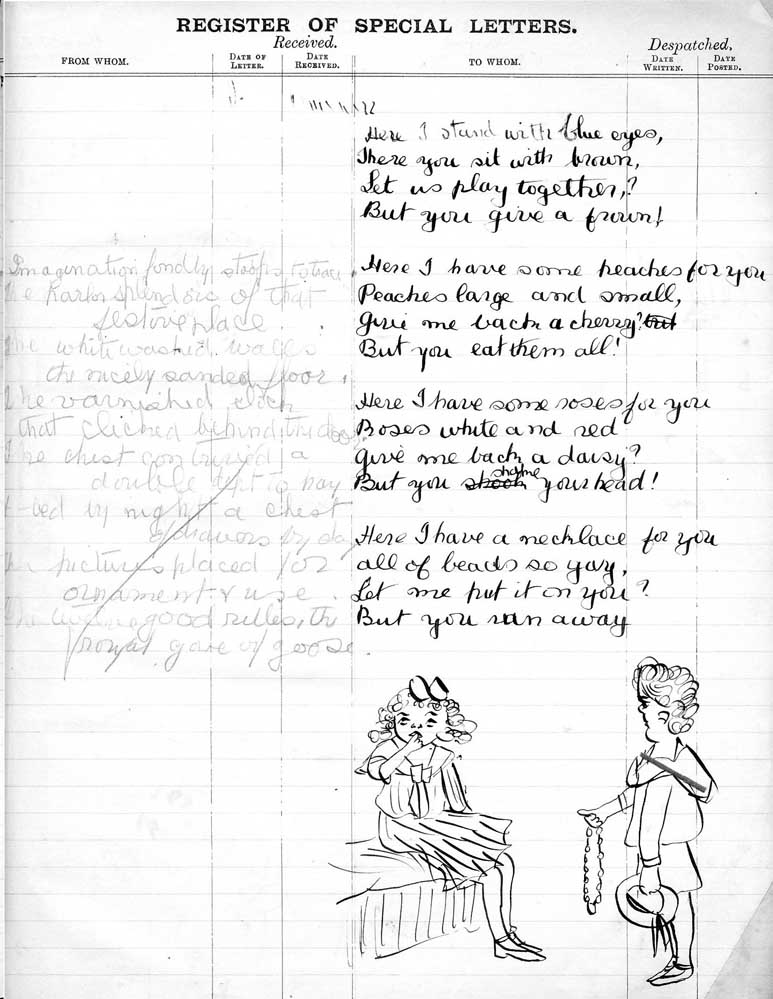 REGISTER OF SPECIAL LETTERS.
Received. Despatched,
FROM WHOM. DATE OF LETTER. DATE RECEIVED. TO WHOM. DATE WRITTEN. DATE POSTED.
Here I stand with blue eyes,
There you sit with brown,
Let us play together,?
But you give a frown!
Here I have some peaches for you
Peaches large and small,
Give me back a cherry? but
But you eat them all!
Here I have some roses for you
Roses white and red
Give me back a daisy?
But you shook your head!
Here I have a necklace for you
all of beads so gay,
Let me put it on you?
But you ran away
Imagination fondly stoops to trace
The Parlor splendors of that
festive place
The whitewashed walls
the nicely sanded floor
The varnished clock
that clicked behind the door
The chest contrived a
double to pay
bed by night a chest
of drawers by day
The pictures placed for
ornament & use.
The good rules, the
royal game of goose.